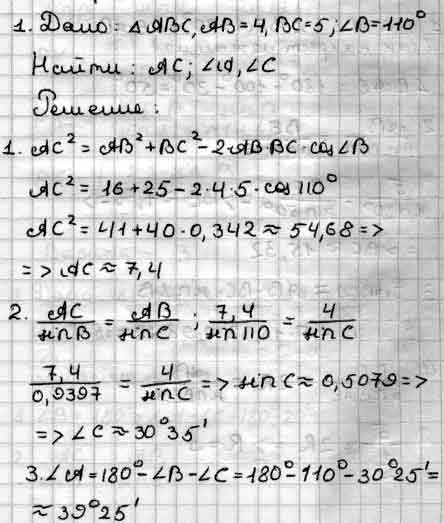 1. Дано: △ABC, AB=4, BC=5; ∠B=110°
Найти: AC; ∠A, ∠C
Решение:
1. AC²=AB²+BC²-2·AB·BC·cos∠B
AC²=16+25-2·4·5·cos110°
AC²=41+40·0,342≈54,68=>
=> AC≈7,4
2. AC/sinB = AB/sinC ; 7,4/sin110 = 4/sinC
7,4/0,9397 = 4/sinC => sinC≈0,5079=>
=> ∠C≈30°35'
3. ∠A=180°-∠B-∠C=180°-110°-30°25'=
≈39°25'